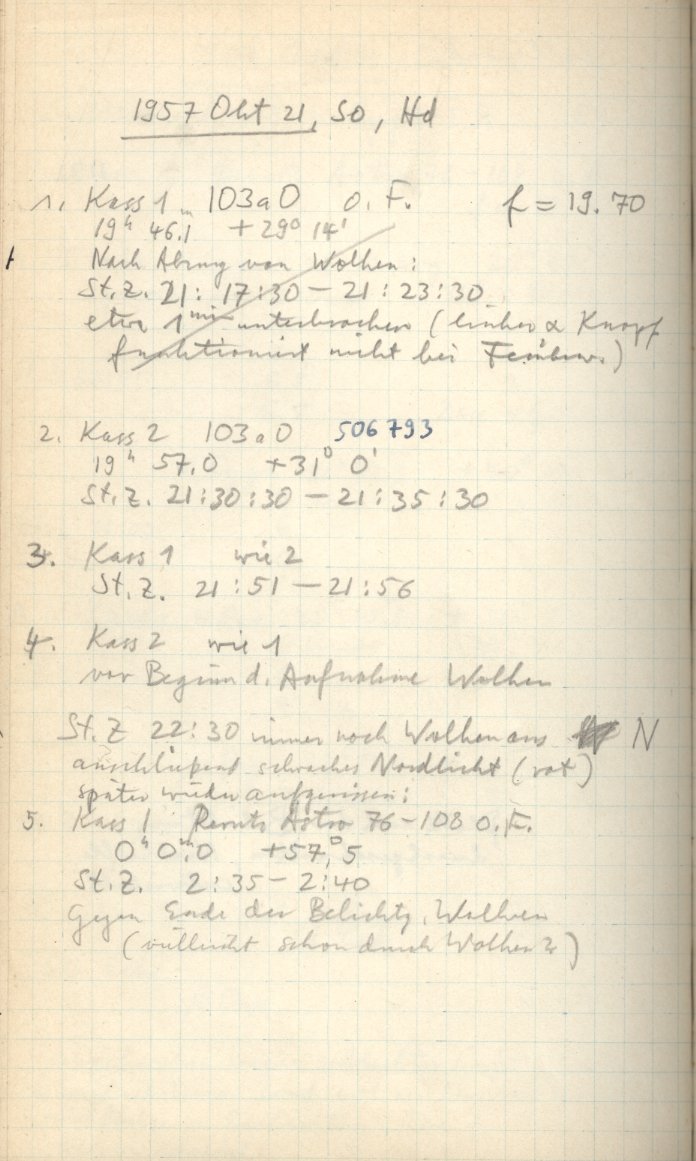 1957 Okt 21, So, Hd
1. Kass 1 103aO o.F. f = 19.70
19h 46.m1 +29° 14'
Nach Abzug von Wolken:
St.Z. 21:17:30 – 21:23:30
etwa 1min unterbrochen (linker α Knopf
funktioniert nicht bei Feinbew.)
2. Kass 2 103aO 506793
19h 57,0 +31° 0'
St.Z. 21:30:30 – 21:35:30
3. Kass 1 wie 2
St.Z. 21:51 – 21:56
4. Kass 2 wie 1
vor Beginn d. Aufnahme Wolken
St.Z 22:30 immer noch Wolken aus N
anschließend schwaches Nordlicht (rot)
später wieder aufgerissen:
5. Kass 1 Perutz Astro 76-108 o.F.
0h 0m,0 +57,°5
St.Z. 2:35 – 2:40
Gegen Ende der Belichtg. Wolken
(vielleicht schon durch Wolken ?)